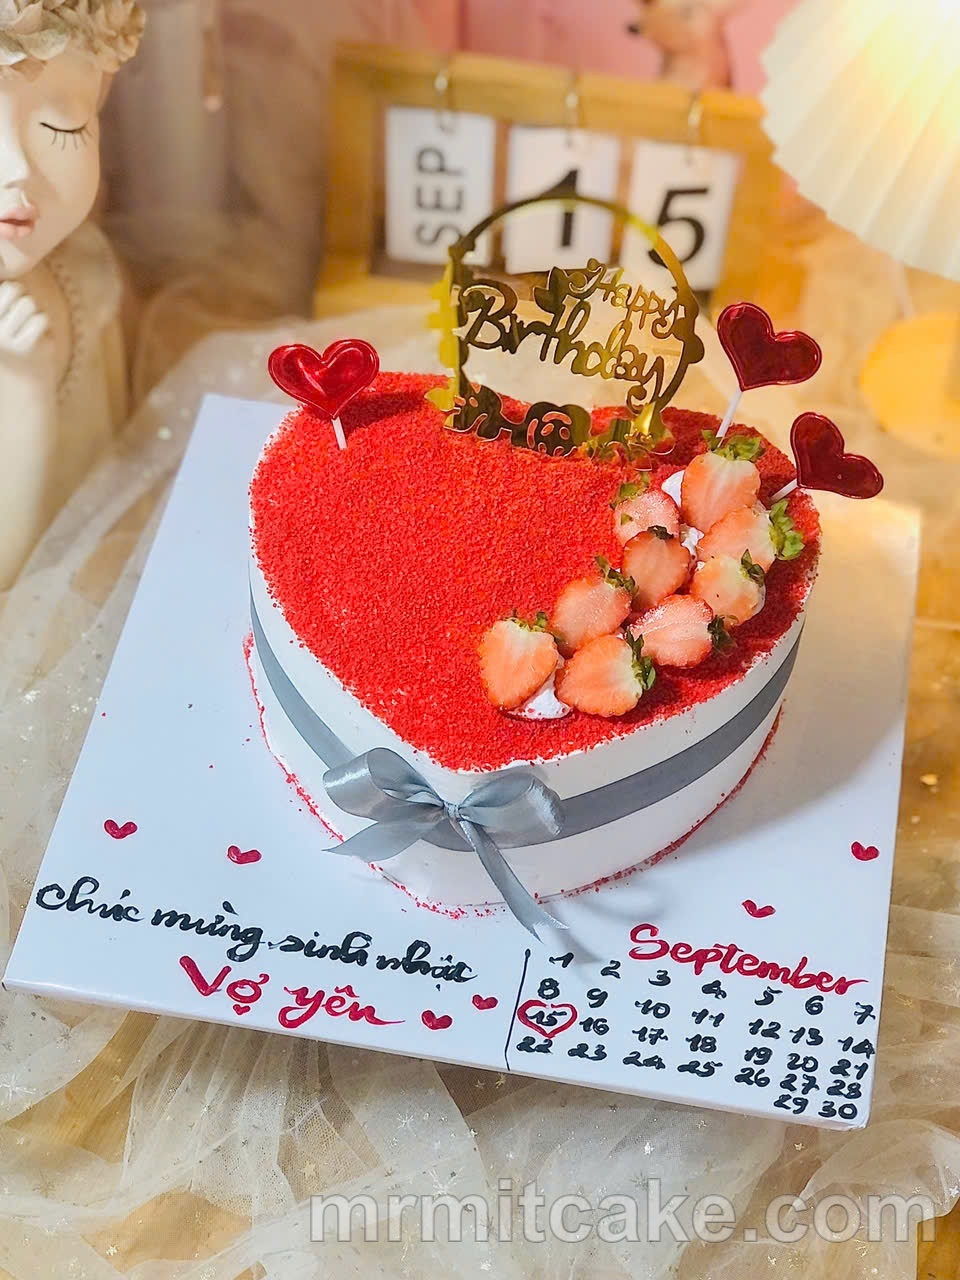 SEP 15
Happy
Birthday
chúc mừng sinh nhật
Vợ yên
September
1 2 3 4 5 6 7
8 9 10 11 12 13 14
15 16 17 18 19 20 21
22 23 24 25 26 27 28
29 30
mrmitcake.com